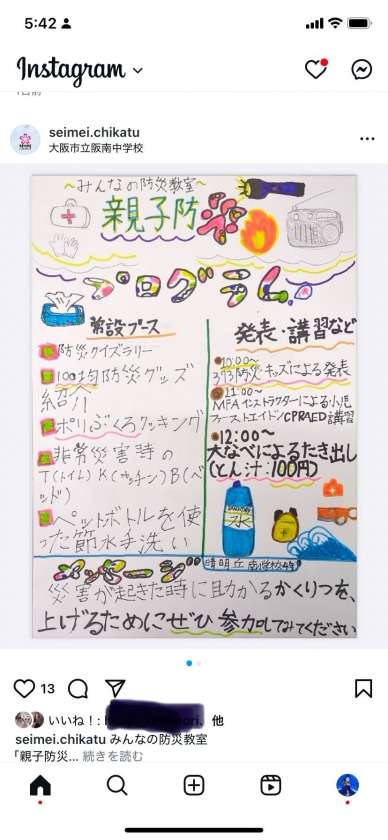 5:42
Instagram
1日前
seimei.chikatu
大阪市立阪南中学校
~みんなの防災教室~
親子防災
プログラム
常設ブース
防災クイズラリー
100均防災グッズ
紹介
ポリぶくろクッキング
非常災害時の
T(トイレ)K(キッチン)B(ベッド)
ペットボトルを使
った節水手洗い
発表・講習など
10:00~
313防災キッズによる発表
11:00~
MFAインストラクターによる小児
ファーストエイドCPRAED講習
12:00~
大なべによるたき出し
(とん汁:100円)
水
晴明丘南小学校4年
メッセージ
災害が起きた時に助かるかくりつを、
上げるためにぜひ参加してみてください
13
いいね!:
他
seimei.chikatu みんなの防災教室
「親子防災... 続きを読む